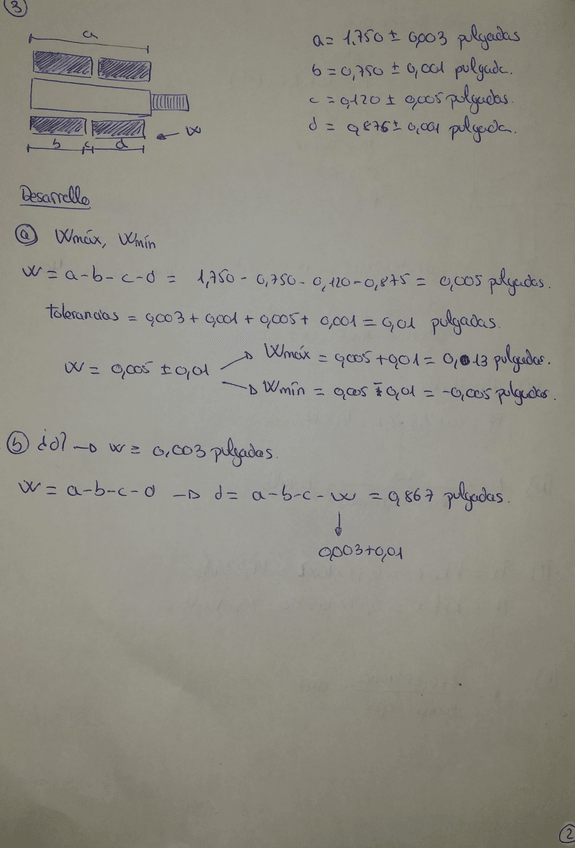 3
a
a = 1,750 ± 0,003 pulgadas
b = 0,750 ± 0,001 pulgada.
c = 0,120 ± 0,005 pulgadas.
d = 0,875 ± 0,001 pulgada.
w
b c d
Desarrollo
a Wmáx, Wmín
W = a-b-c-d = 1,750 - 0,750 - 0,120 - 0,875 = 0,005 pulgadas.
tolerancias = 0,003 + 0,001 + 0,005 + 0,001 = 0,01 pulgadas.
Wmáx = 0,005 + 0,01 = 0,013 pulgadas.
W = 0,005 ± 0,01
Wmín = 0,005 - 0,01 = -0,005 pulgadas.
b ¿d? → w = 0,003 pulgadas.
W = a-b-c-d → d = a-b-c-w = 0,867 pulgadas.
0,003+0,01
2